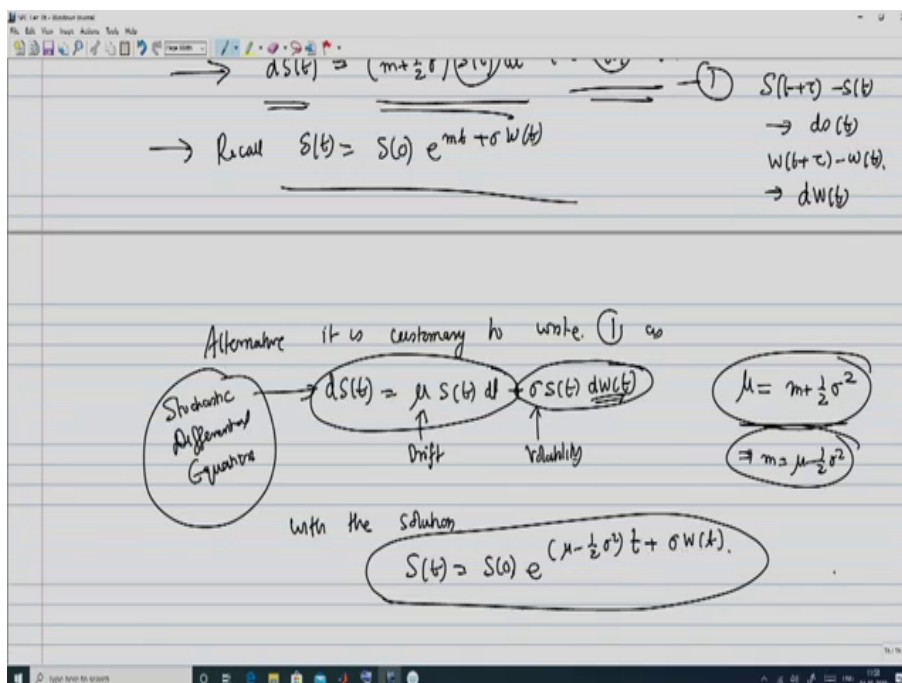 File Edit View Insert Actions Tools Help
Page Width
→ dS(t) = (m+½σ)
①
S(t+τ) - S(t)
→ ds(t)
→ Recall S(t) = S(0) e^{mt + σ W(t)}
W(t+τ) - W(t).
→ dW(t)
Alternative it is customary to write ① as
Stochastic Differential Equations
→ dS(t) = μ S(t) dt + σ S(t) dW(t)
μ = m + ½σ²
↑ Drift
↑ Volatility
⇒ m = μ - ½σ²
with the solution
S(t) = S(0) e^{(μ - ½σ²) t + σ W(t)}.
Type here to search